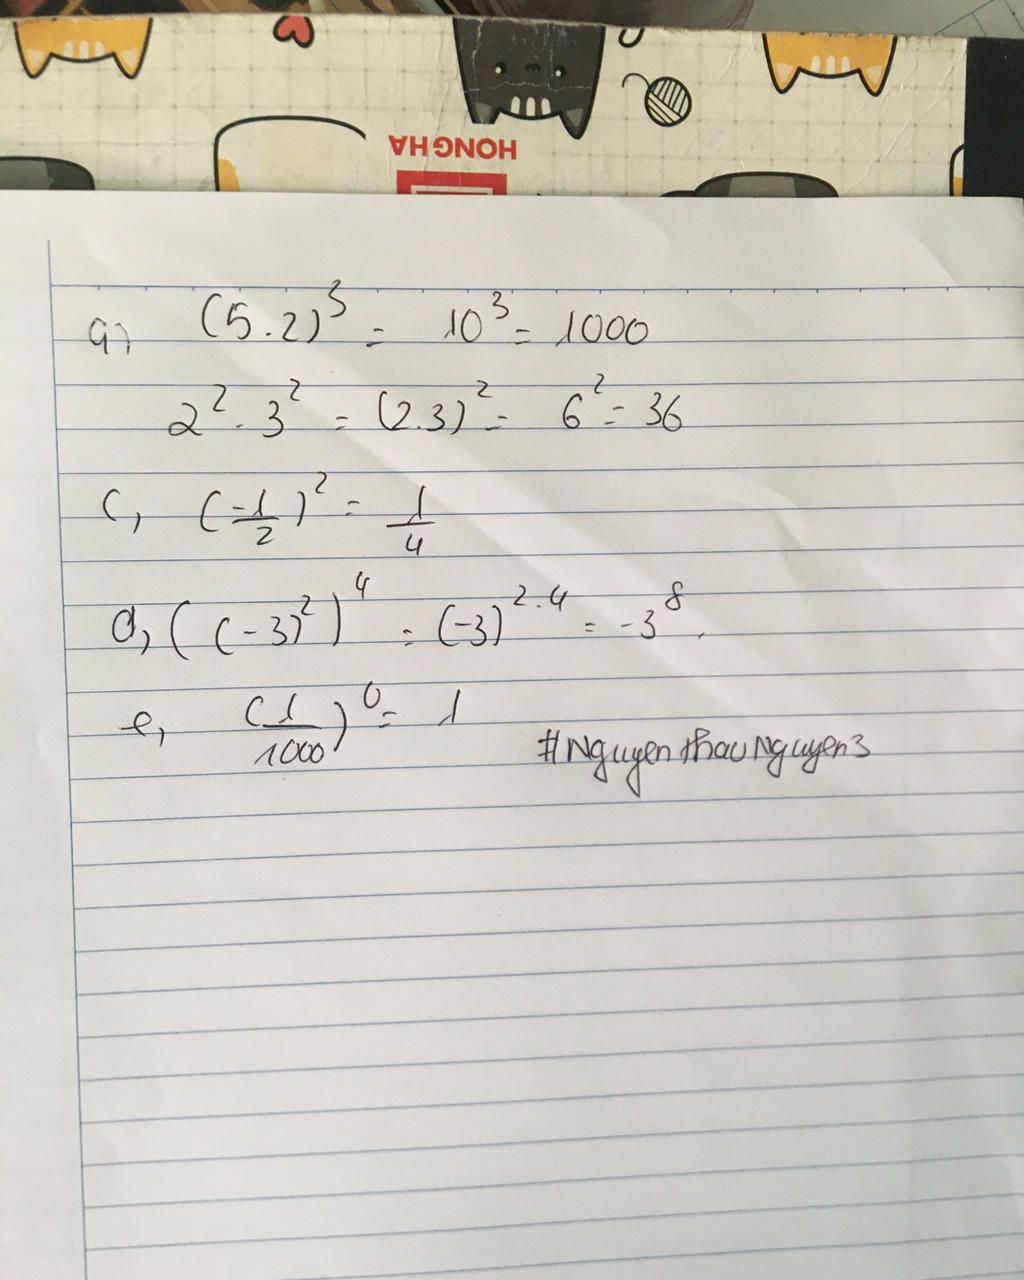 HONG HA
a, (5.2)³ = 10³ = 1000
2² . 3² = (2.3)² = 6² = 36
c, (-1/2)² = 1/4
d, ((-3)²)⁴ = (-3)^2.4 = -3⁸.
e, (1/1000)⁰ = 1
#NguyenthauNguyen3